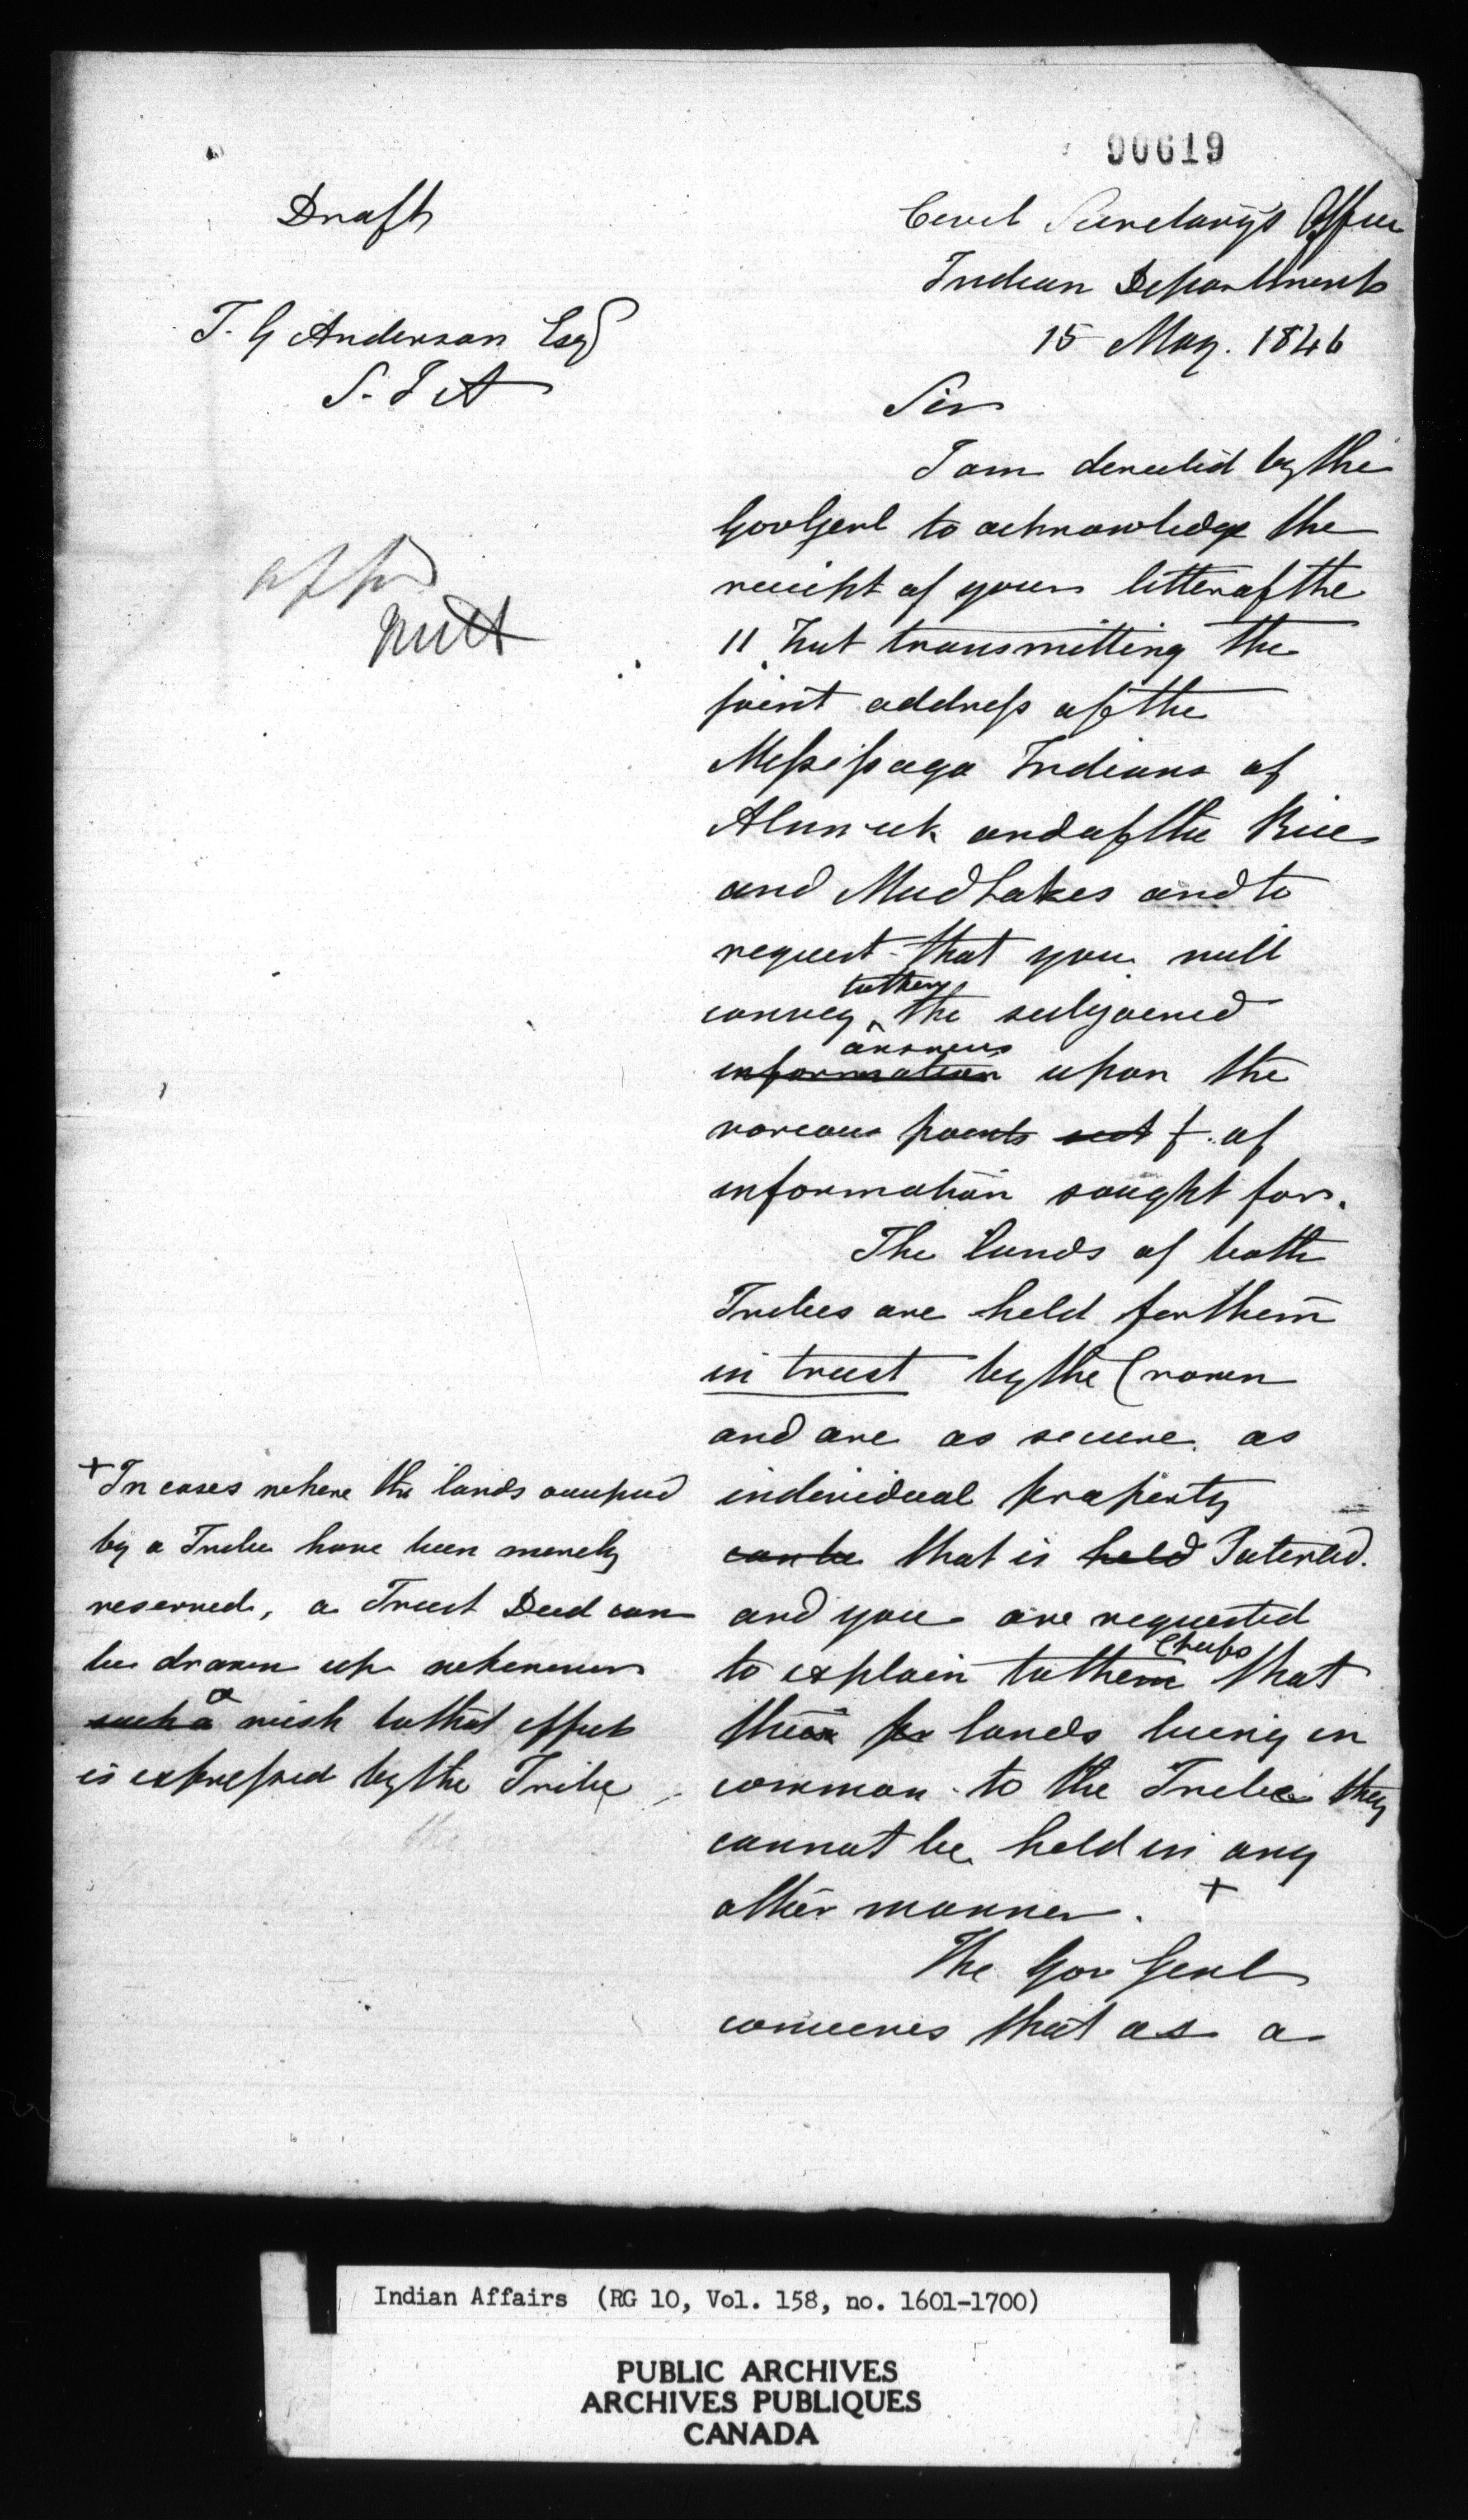 90619
Draft
Civil Secretary's Office
Indian Department
15 May. 1846
T. G Anderson Esq
S. I A
Sir
I am directed by the
Gov Genl to acknowledge the
receipt of your letter of the
11 Inst transmitting the
joint address of the
Missisaga Indians of
Alnwick and of the Rice
and Mud Lakes and to
request that you will
convey to them the subjoined
information answers upon the
various points of
information sought for.
The lands of both
Tribes are held for them
in trust by the Crown
and are as secure as
individual property
can be that is held Patented.
and you are requested
to explain to them Chiefs that
their lands being in
common to the Tribe they
cannot be held in any
other manner. +
The Gov Genl
conceives that as a
appd
+ In cases where the lands occupied
by a Tribe have been merely
reserved, a Trust Deed can
be drawn up whenever
such a a wish to that effect
is expressed by the Tribe
Indian Affairs (RG 10, Vol. 158, no. 1601-1700)
PUBLIC ARCHIVES
ARCHIVES PUBLIQUES
CANADA